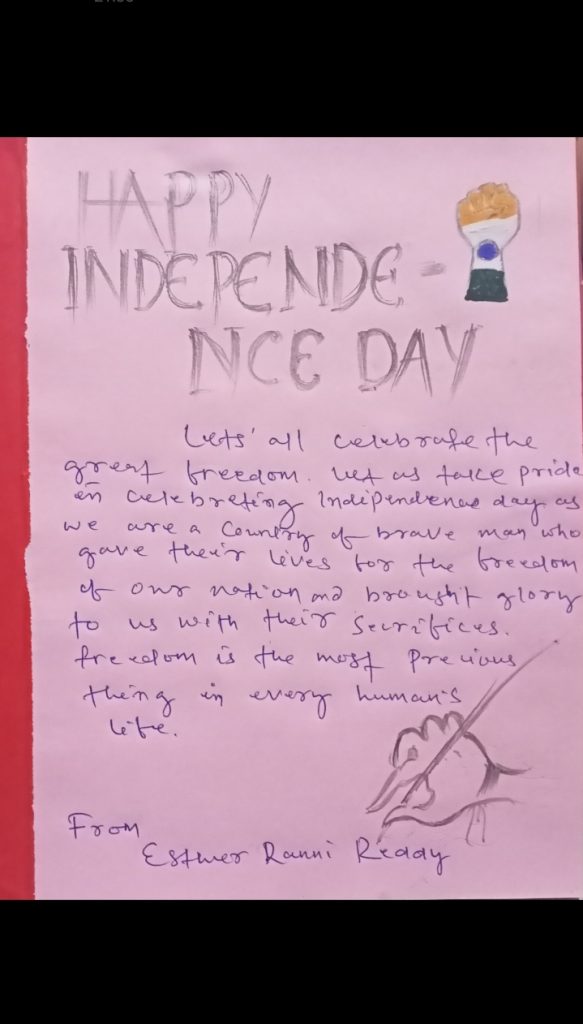 HAPPY
INDEPENDE -
NCE DAY
Lets' all celebrate the
great freedom. Let us take pride
in celebrating Independence day as
we are a country of brave man who
gave their lives for the freedom
of our nation and brought glory
to us with their Secrifices.
freedom is the most precious
thing in every human's
life.
From
Esther Ranni Reddy